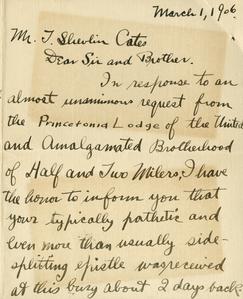 March 1, 1906.
Mr. T. Shevlin Cates
Dear Sir and Brother.
In response to an
almost unanimous request from
the Princetonia Lodge of the United
and Amalgamated Brotherhood
of Half and Two Milers, I have
the honor to inform you that
your typically pathetic and
even more than usually side-
splitting epistle was received
at this burg about 2 days back